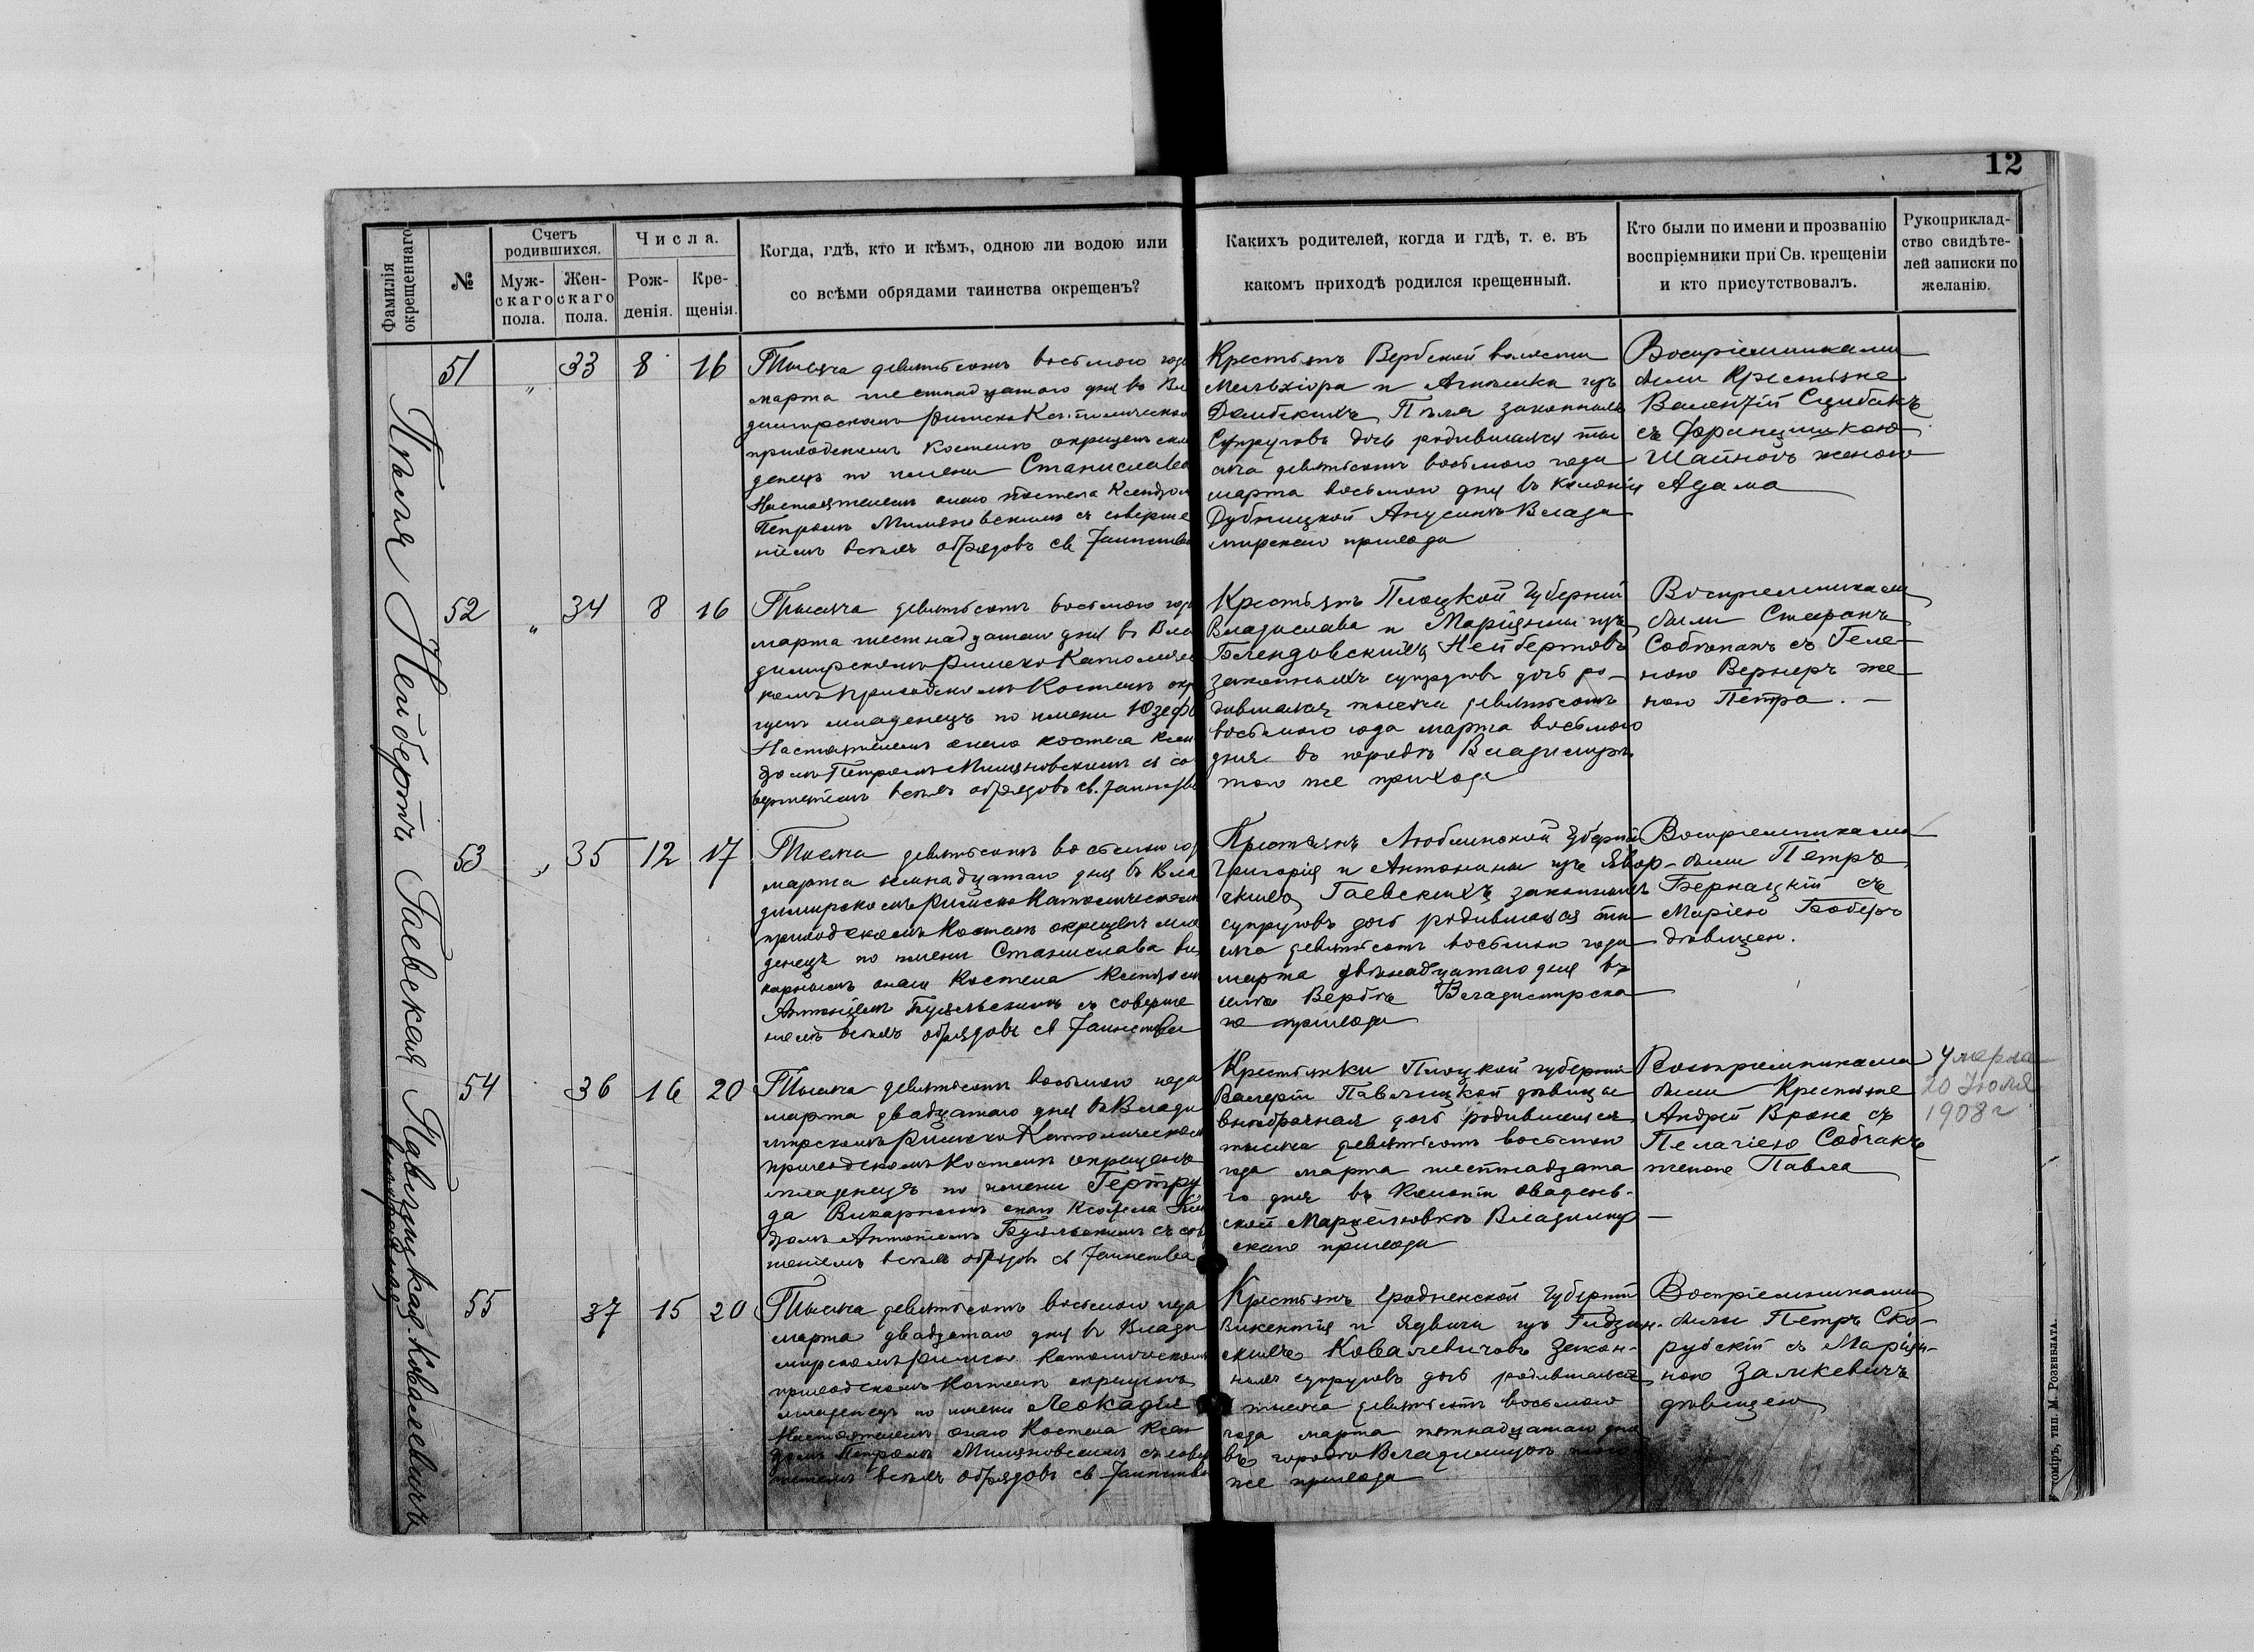 12
Фамилія
окрещеннаго
№
Счетъ
родившихся.
Муж-
скаго
пола.
Жен-
скаго
пола.
Числа.
Рож-
денія.
Кре-
щенія.
Когда, гдѣ, кто и кѣмъ, одною ли водою или
со всѣми обрядами таинства окрещенъ?
Какихъ родителей, когда и гдѣ, т. е. въ
какомъ приходѣ родился крещенный.
Кто были по имени и прозванію
воспріемники при Св. крещеніи
и кто присутствовалъ.
Рукоприклад-
ство свидѣте-
лей записки по
желанію.
Пѣля
51 „ 33 8 16
Тысяча девятьсотъ восьмого года
марта шестнадцатого дня въ Вла
димірскомъ Римско Католическомъ
приходскомъ костелѣ окрещенъ мла
денецъ по имени Станислава
Настоятелемъ онаго костела Ксендзом
Петромъ Миляновскимъ съ соверше
ніемъ всѣхъ обрядовъ св Таинства
Крестьянъ Вербской волости
Мельхіора и Агнешки изъ
Домбскихъ Пѣля законныхъ
Супруговъ дочь родившаяся ты
сяча девятьсотъ восьмого года
марта восьмого дня въ колоніи
Дубницкой Анусинъ Влади
мирскаго прихода
Воспріемниками
были Крестьяне
Валентій Сцибакъ
съ Францишкою
Шайногъ женою
Адама
Нейбертъ
52 „ 34 8 16
Тысяча девятьсотъ восьмого года
марта шестнадцатаго дня въ Вла
димірскомъ Римско Католичес
комъ приходскомъ Костелѣ окре
щенъ младенецъ по имени Юзефа
Настоятелемъ онаго костела Ксен
дзомъ Петромъ Миляновскимъ съ со
вершеніемъ всѣхъ обрядовъ св. Таинства
Крестьянъ Плоцкой Губерніи
Владислава и Маріянны изъ
Блендовскихъ Нейбертовъ
законныхъ супруговъ дочь ро-
дившаяся тысяча девятьсотъ
восьмого года марта восьмого
дня въ городѣ Владимірѣ
того же прихода
Воспріемниками
были Стефанъ
Собчакъ съ Геле-
ною Вернеръ же-
ною Петра. —
Гаевская
53 „ 35 12 17
Тысяча девятьсотъ восьмого года
марта семнадцатаго дня въ Вла
димірскомъ Римско Католическомъ
приходскомъ Костелѣ окрещенъ мла
денецъ по имени Станислава ви
карнымъ онаго Костела Ксендзомъ
Антоніемъ Бусяльскимъ съ соверше
ніемъ всѣхъ обрядовъ св Таинства
Крестьянъ Люблинской Губерніи
Григорія и Антонины изъ Явор-
скихъ Гаевскихъ законныхъ
супруговъ дочь родившаяся ты
сяча девятьсотъ восьмого года
марта двѣнадцатаго дня въ
селѣ Вербѣ Владимірска
го прихода
Воспріемниками
были Петръ
Бернацкій съ
Маріею Боберъ
дѣвицею.
Павлицкая
внѣбрачная
54 36 16 20
Тысяча девятьсотъ восьмого года
марта двадцатаго дня въ Влади
мірскомъ Римско Католическомъ
приходскомъ Костелѣ окрещенъ
младенецъ по имени Гертру
да Викарнымъ онаго Костела Ксен
дзомъ Антоніемъ Бусяльскимъ съ совер
шеніемъ всѣхъ обрядовъ св Таинства
Крестьянки Плоцкой губерніи
Валеріи Павлицкой дѣвицы
внѣбрачная дочь родившаяся
тысяча девятьсотъ восьмого
года марта шестнадцата
го дня въ Колоніи Оваднѣв-
ской Марцелювкѣ Владимір
скаго прихода
Воспріемниками
были Крестьяне
Андрей Врона съ
Пелагіею Собчакъ
женою Павла
Умерла
20 Іюля
1908 г
Ковалевичъ
55 37 15 20
Тысяча девятьсотъ восьмого года
марта двадцатаго дня въ Влади
мірскомъ Римско Католическомъ
приходскомъ Костелѣ окрещенъ
младенецъ по имени Леокадія
Настоятелемъ онаго Костела Ксен
дзомъ Петромъ Миляновскимъ съ совер
шеніемъ всѣхъ обрядовъ св Таинства
Крестьянъ Гродненской Губерніи
Викентія и Ядвиги изъ
Ковалевичовъ закон-
ныхъ супруговъ дочь родившаяся
тысяча девятьсотъ восьмого
года марта пятнадцатаго дня
въ городѣ Владимірѣ того
же прихода
Воспріемниками
были Петръ Ско-
рубскій съ Маріян-
ною Залкевичъ
дѣвицею
томіръ, тип. М. Розенблата.